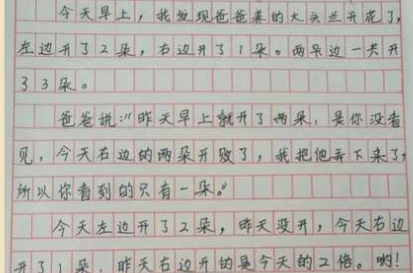 今天早上，我发现爸爸养的大头兰开花了，
左边开了2朵，右边开了1朵。两朵边一共开
了3朵。
爸爸说："昨天早上就开了两朵，是你没看
见，今天右边的两朵开败了，我把他弄下来了，
所以你看到的只有一朵。"
今天左边开了2朵，昨天没开，今天右边
开了1朵，昨天右边开的是今天的2倍。哟！